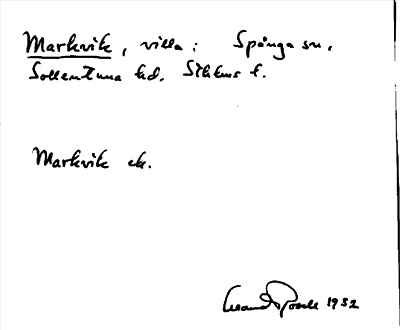 Markvik, villa: Spånga sn,
Sollentuna hd. Sthlms l.
Markvik ek.
1952